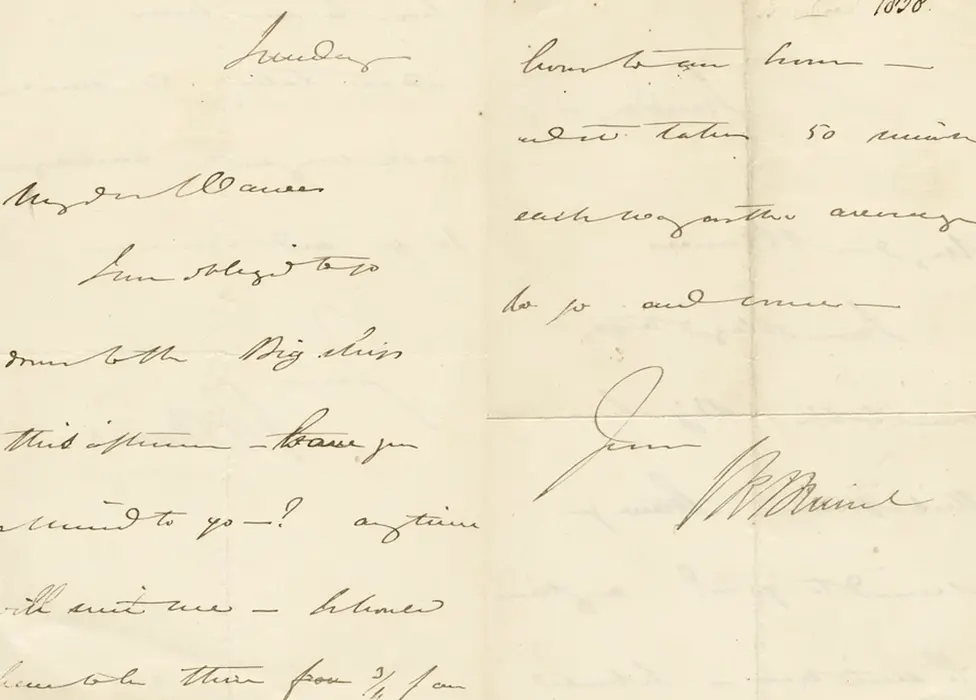 Sunday
My dear Wances
I am obliged to go
down to the Big ship
this afternoon — have you
a mind to go —? any time
will suit me — I should
have to be there from 3/4 of an
1858.
hour to an hour —
and it takes 50 minu
each way on the average
to go and come —
Yours
I K Brunel